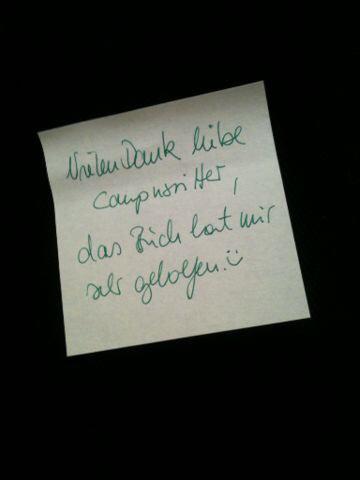 Vielen Dank liebe
Campusritter,
das Buch hat mir
sehr geholfen! :)